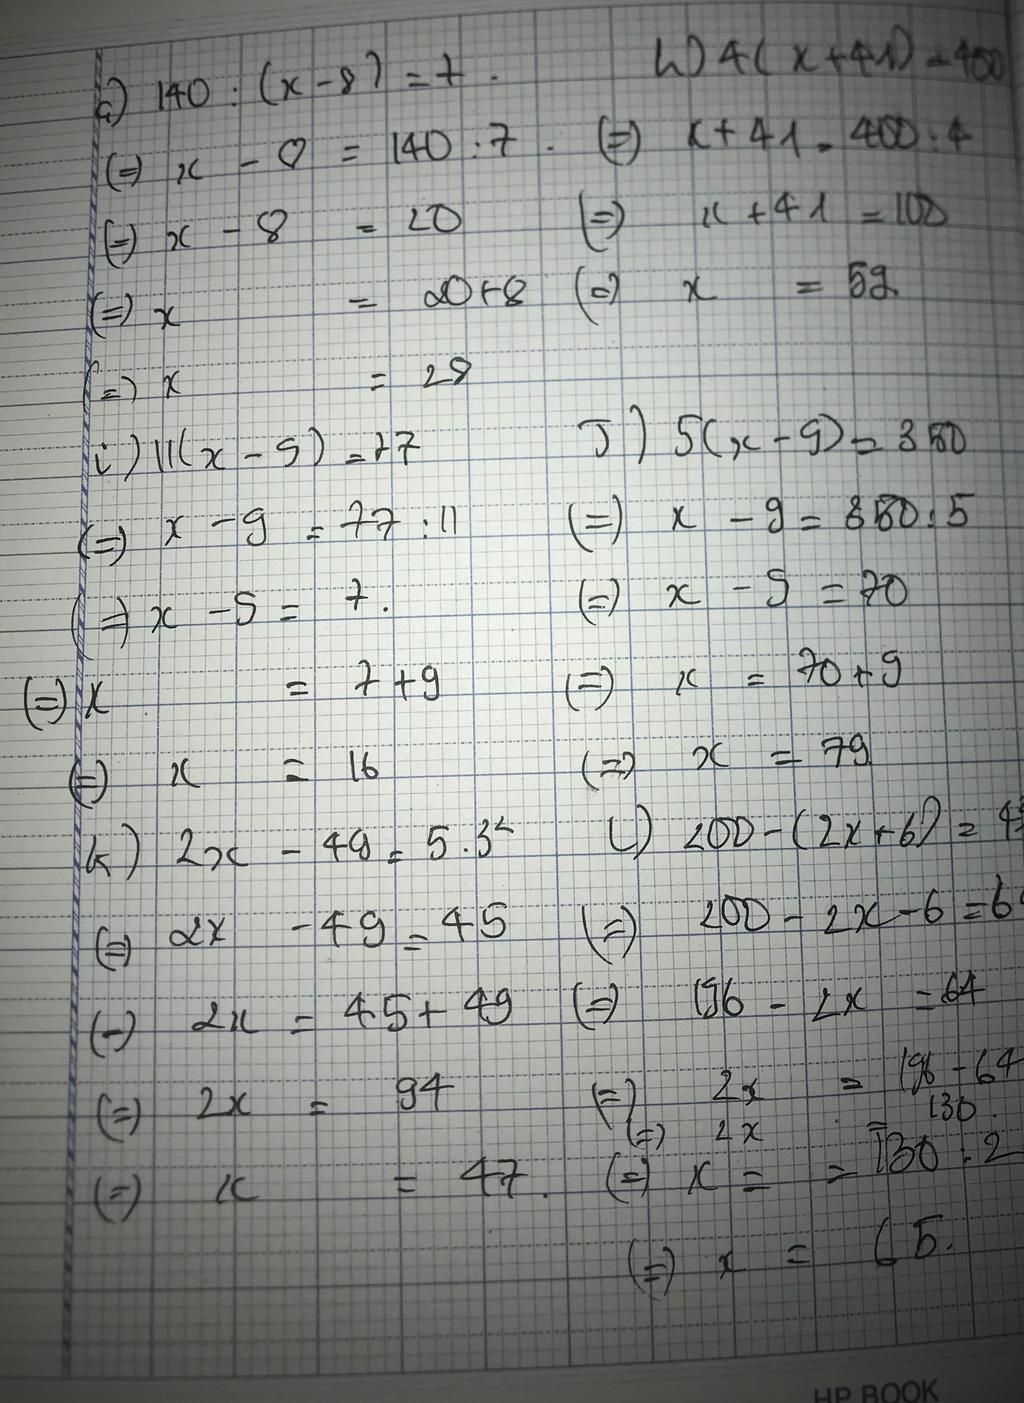 G) 140 : (x - 8) = 7.
(=) x - 8 = 140 : 7.
(=) x - 8 = 20
(=) x = 20 + 8
(=) x = 28
h) 4(x + 41) = 400
(=) x + 41 = 400 : 4
(=) x + 41 = 100
(=) x = 59
i) 11(x - 9) = 77
(=) x - 9 = 77 : 11
(=) x - 9 = 7.
(=) x = 7 + 9
(=) x = 16
J) 5(x - 9) = 350
(=) x - 9 = 350 : 5
(=) x - 9 = 70
(=) x = 70 + 9
(=) x = 79
k) 2x - 49 = 5.3²
(=) 2x - 49 = 45
(=) 2x = 45 + 49
(=) 2x = 94
(=) x = 47.
L) 200 - (2x + 6) = 4³
(=) 200 - 2x - 6 = 64
(=) 196 - 2x = 64
(=) 2x = 196 - 64
(=) 2x = 130.
(=) x = = 130 : 2
(=) x = 65.
HP BOOK